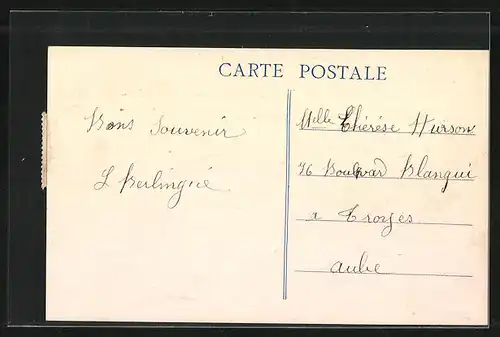 CARTE POSTALE
Bons Souvenir
L Berlinguè
Melle Thérése Hurson
76 Boulvard Blanqui
a Troyes
Aube